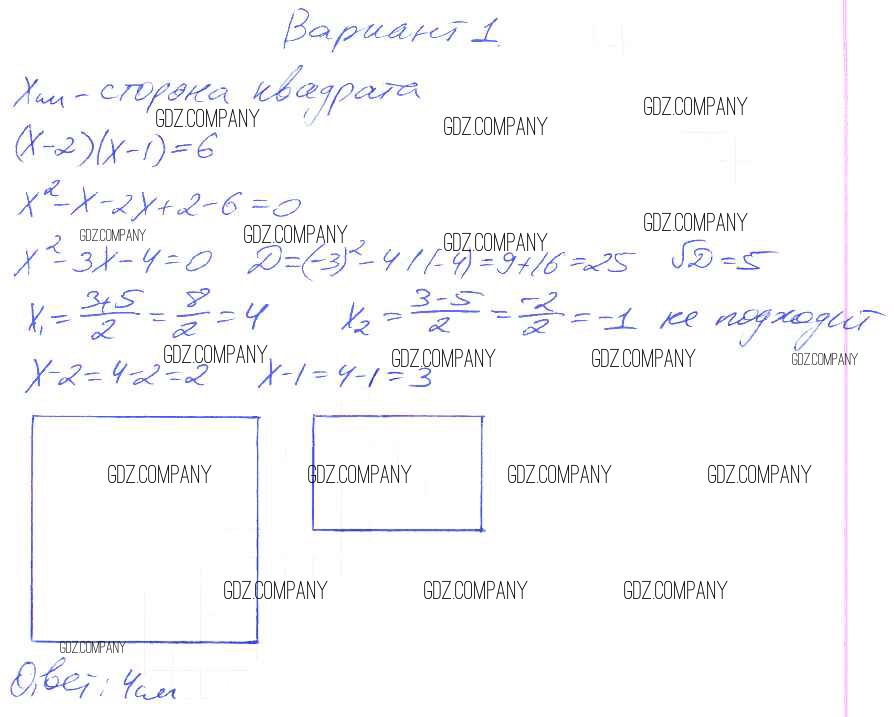 Вариант 1
x см - сторона квадрата
GDZ.COMPANY GDZ.COMPANY GDZ.COMPANY
(x-2)(x-1)=6
x²-x-2x+2-6=0
GDZ.COMPANY GDZ.COMPANY GDZ.COMPANY GDZ.COMPANY
x²-3x-4=0 D=(-3)²-4·1·(-4)=9+16=25 √D=5
x₁=(3+5)/2=8/2=4 x₂=(3-5)/2=-2/2=-1 не подходит
GDZ.COMPANY GDZ.COMPANY GDZ.COMPANY GDZ.COMPANY
x-2=4-2=2 x-1=4-1=3
GDZ.COMPANY GDZ.COMPANY GDZ.COMPANY GDZ.COMPANY
GDZ.COMPANY GDZ.COMPANY GDZ.COMPANY
GDZ.COMPANY
Ответ: 4см